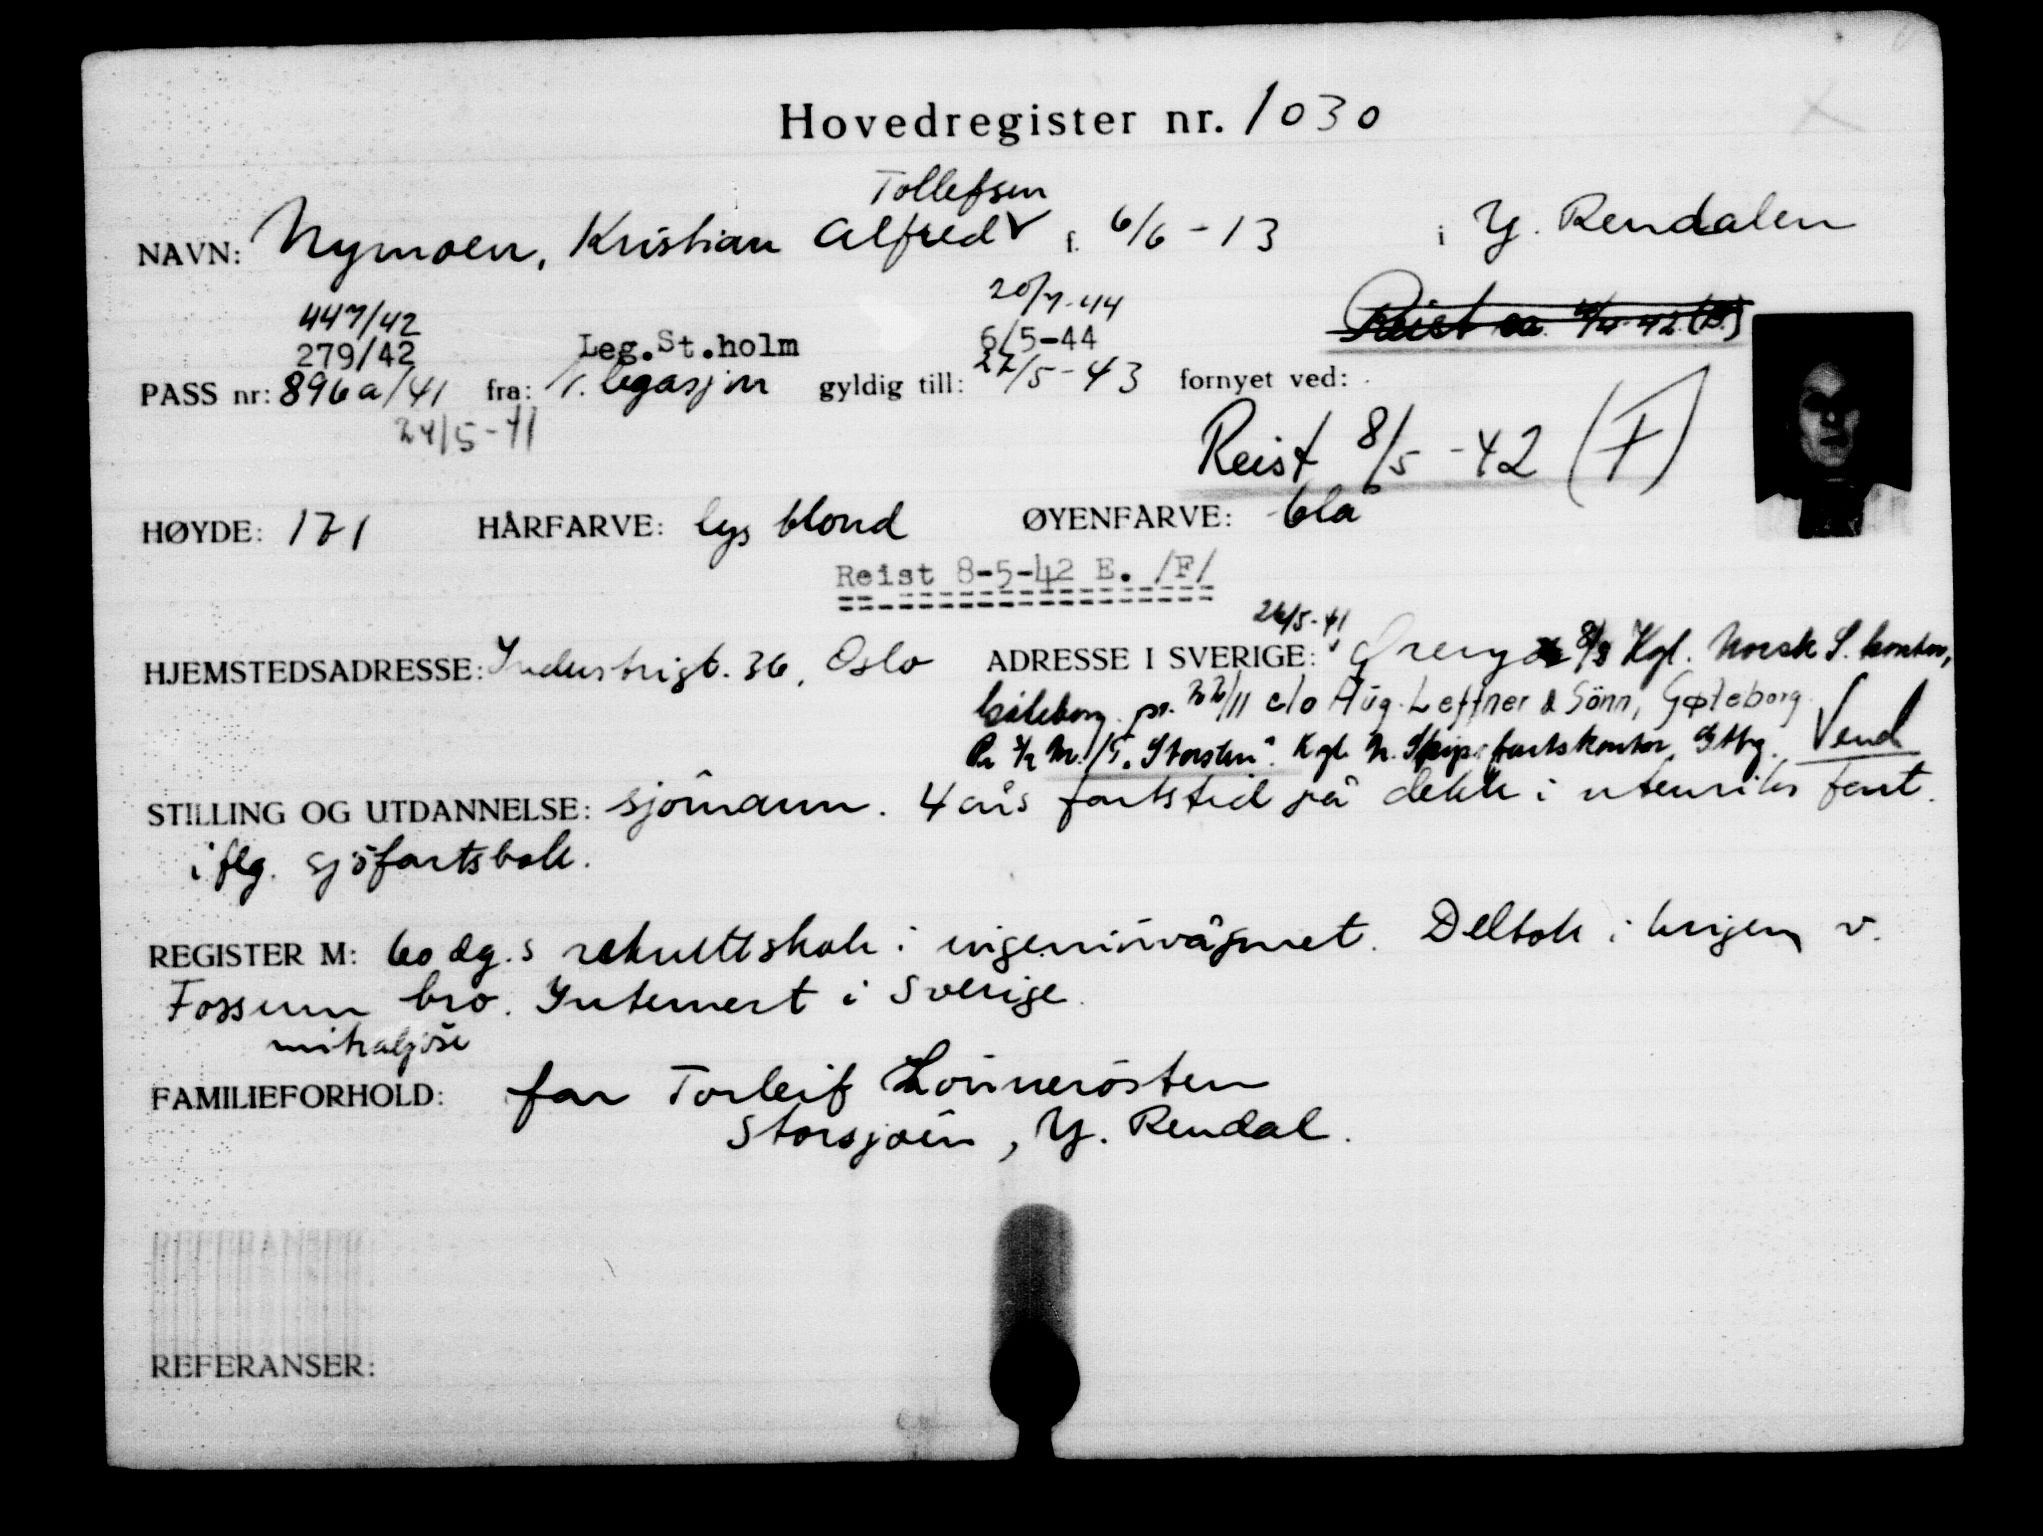 Hovedregister nr. 1030
Tollefsen
NAVN: Nymoen, Kristian Alfred f. 6/6 - 13 i Y. Rendalen
447/42 20/7-44
279/42 Leg.St.holm 6/5-44
PASS nr: 896a/41 fra: legasjon gyldig till: 22/5-43 fornyet ved:
24/5-41
Reist 8/5-42 (F)
HØYDE: 171 HÅRFARVE: lys blond ØYENFARVE: blå
Reist 8-5-42 E. /F/
26/5-41
HJEMSTEDSADRESSE: Industrigt. 36, Oslo ADRESSE I SVERIGE: Öreryd 8/8 Kgl. Norsk S. kontor,
Göteborg. pr. 22/11 c/o Aug. Leffner & Sönn, Gøteborg.
Pr M/T. "Storsten". Kgl. N. Skipsfartskontor, Gtbg. Vend
STILLING OG UTDANNELSE: sjömann. 4 års fartstid på dekk i utenriks fart.
i flg. sjöfartsbok.
REGISTER M: 60 dg.s rekruttskole i ingeniörvåpnet. Deltok i krigen v.
Fossum bro. Internert i Sverige.
mitraljöse
FAMILIEFORHOLD: far Torleif Lönnerösten
Storsjöen, Y. Rendal.
REFERANSER: